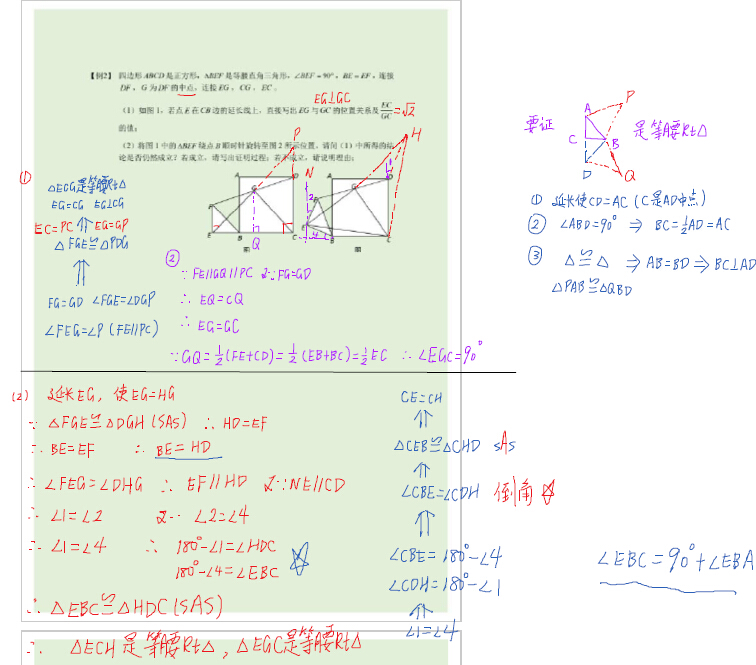 【例2】 四边形ABCD是正方形，△BEF是等腰直角三角形，∠BEF=90°，BE=EF，连接
DF，G为DF的中点，连接EG，CG，EC。
EG⊥GC
（1）如图1，若点E在CB边的延长线上，直接写出EG与GC的位置关系及EC/GC=√2
的值；
（2）将图1中的△BEF绕点B顺时针旋转至图2所示位置，请问（1）中所得的结
论是否仍然成立？若成立，请写出证明过程；若不成立，请说明理由；
P
H
N
A
D
G
F
E
B
Q
C
A
G
F
E
B
C
①
△EGC是等腰Rt△
EG=CG EG⊥CG
EC=PC ⇑ EG=GP
△FGE≌△PDG
⇑
FG=GD ∠FGE=∠DGP
∠FEG=∠P (FE//PC)
②
∵ FE//GQ//PC 又∵FG=GD
∴ EQ=CQ
∴ EG=GC
∵GQ=1/2(FE+CD)=1/2(EB+BC)=1/2EC ∴∠EGC=90°
要证
A
P
C
B
D
Q
是等腰Rt△
① 延长使CD=AC (C是AD中点)
② ∠ABD=90° ⇒ BC=1/2AD=AC
③ △≌△ ⇒ AB=BD ⇒ BC⊥AD
△PAB≌△QBD
(2) 延长EG，使EG=HG
∵ △FGE≌△DGH(SAS) ∴ HD=EF
∵ BE=EF ∴ BE=HD
∴ ∠FEG=∠DHG ∴ EF//HD 又∵NE//CD
∴ ∠1=∠2 又∵ ∠2=∠4
∴ ∠1=∠4 ∴ 180°-∠1=∠HDC
180°-∠4=∠EBC
∴ △EBC≌△HDC(SAS)
∴ △ECH是等腰Rt△，△EGC是等腰Rt△
CE=CH
⇑
△CEB≌△CHD SAS
⇑
∠CBE=∠CDH 倒角
⇑
∠CBE=180°-∠4
∠CDH=180°-∠1
⇑
∠1=∠4
∠EBC=90°+∠EBA